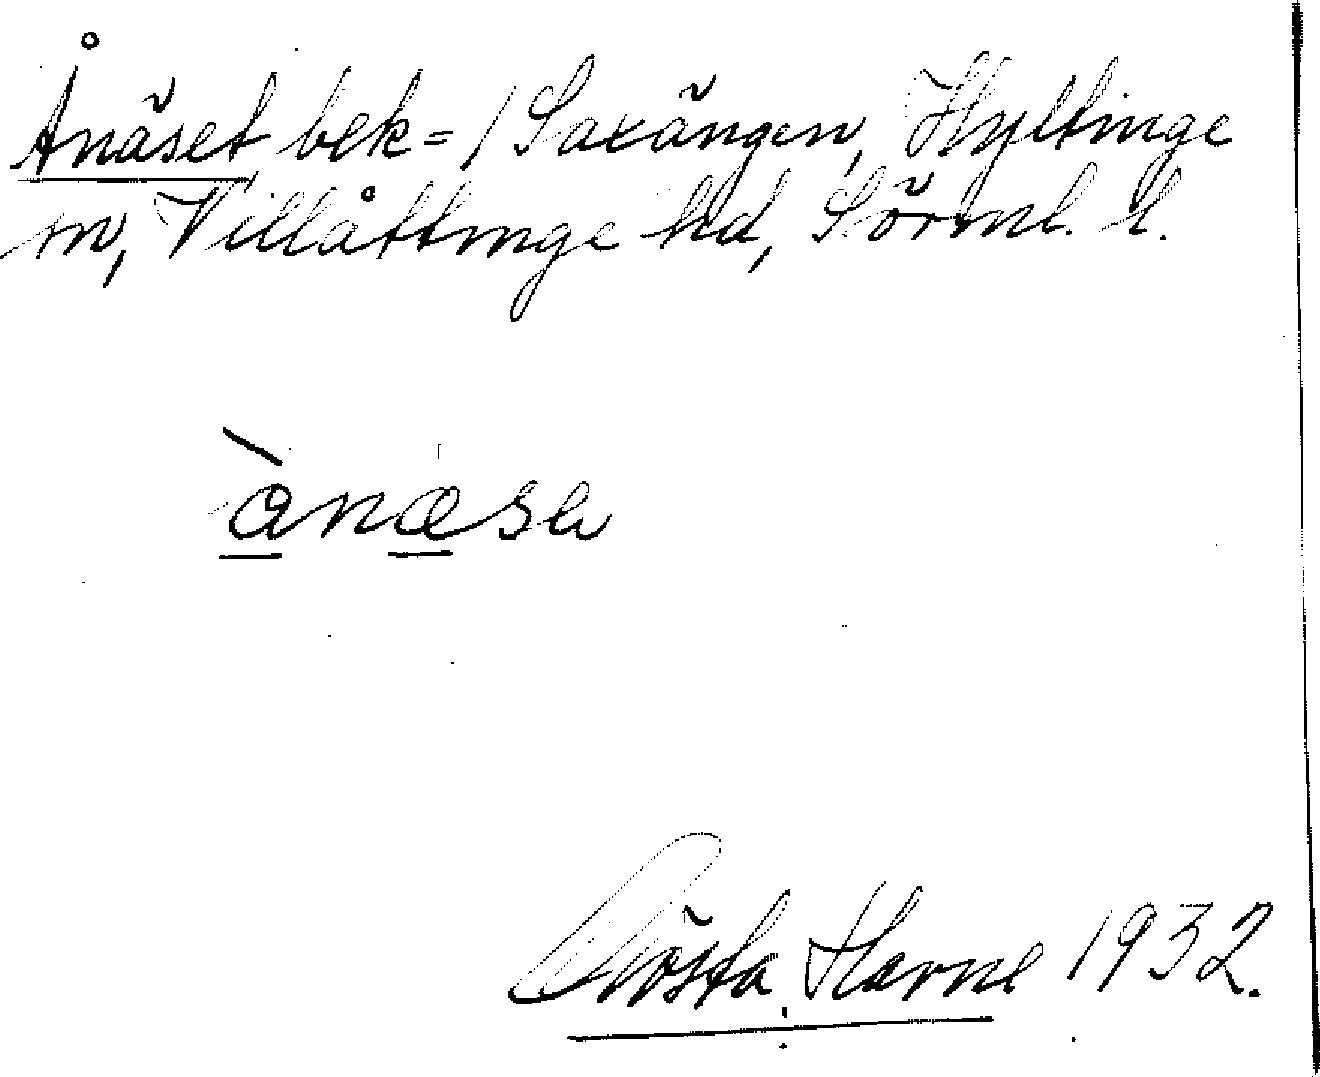 Ånäset bek = / Saxängen, Hyltinge
sn, Villåttinge hd, Sörml. l.
ànæsε
Gösta Harne 1932.